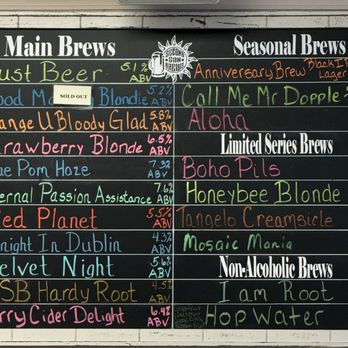 Main Brews
ust Beer 5.1% ABV
ood Mo Blondie 5.2% ABV
SOLD OUT
ange U Bloody Glad 5.8% ABV
rawberry Blonde 6.5% ABV
ue Pom Haze 7.3% ABV
ernal Passion Assistance 7.6% ABV
ied Planet 5.5% ABV
night In Dublin 4.3% ABV
elvet Night 5.6% ABV
SB Hardy Root 4.5% ABV
erry Cider Delight 6.4% ABV
Seasonal Brews
Anniversary Brew Black IP Lager
Call Me Mr Dopple
Aloha
Limited Series Brews
Boho Pils
Honeybee Blonde
Tangelo Creamsicle
Mosaic Mania
Non-Alcoholic Brews
I am Root
Hop Water